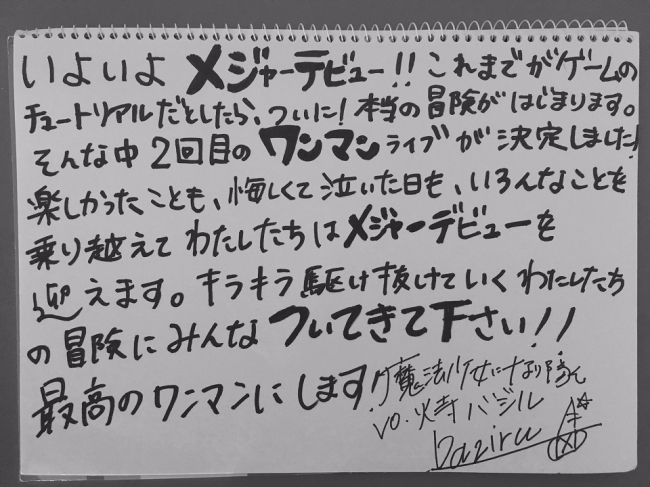 いよいよ メジャーデビュー!! これまでがゲームの
チュートリアルだとしたら、ついに!本当の冒険がはじまります。
そんな中 2回目の ワンマンライブが 決定しました!
楽しかったことも、悔しくて泣いた日も、いろんなことを
乗り越えて わたしたちは メジャーデビューを
迎えます。キラキラ駆け抜けていく わたしたち
の冒険にみんな ついてきて下さい!!
最高のワンマンにします!!
魔法少女になり隊
vo. 火寺バジル
baziru